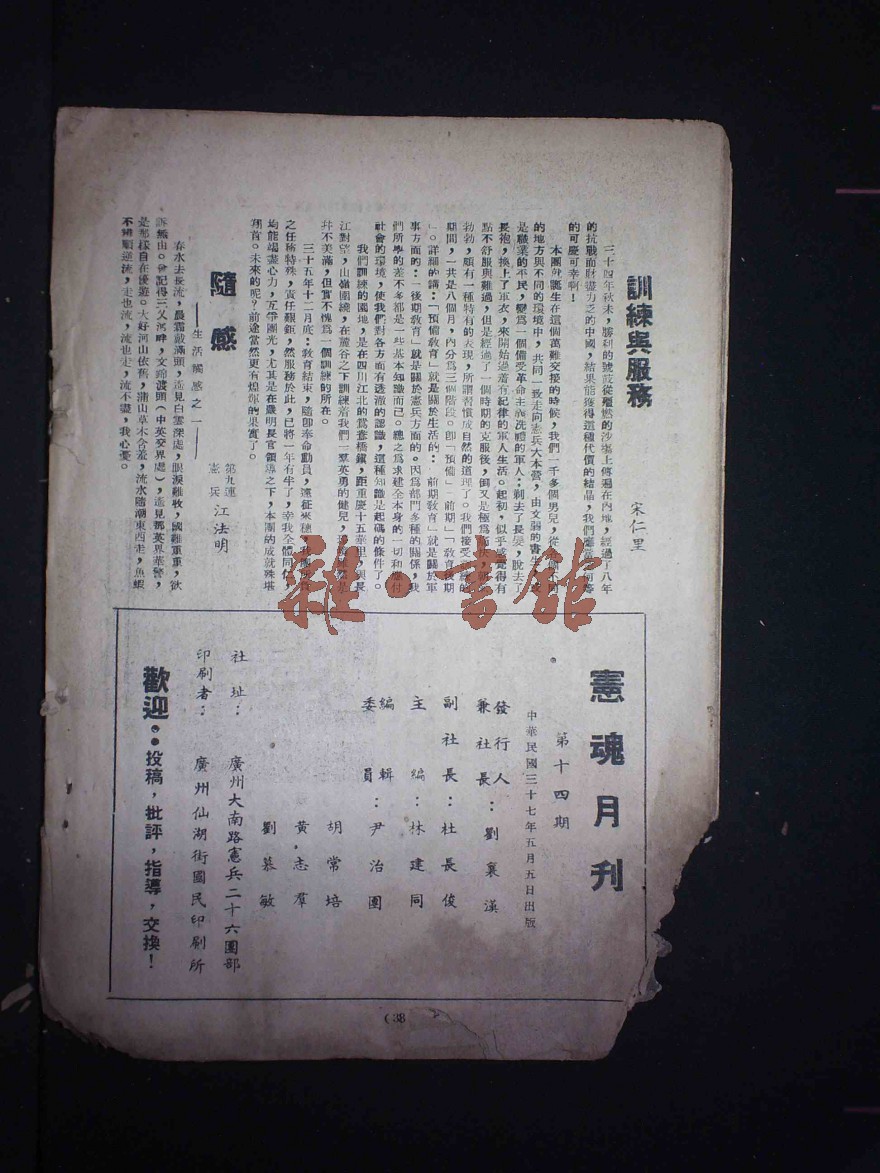 訓練與服務
宋仁里
三十四年秋末，勝利的號鼓從
的沙場上傳遍在內地，經過了八年
的抗戰而財盡力乏的中國，結果能獲得這種代價的結晶，我們
的可慶可幸啊！
本團就誕生在這個萬難交接的時候，我們一千多個男兒，從
的地方與不同的環境中，共同一致走向憲兵大本營，由文弱的書生
是職業的平民，變為一個備受革命主義洗禮的軍人：剃去了長髮，脫去了
長袍，換上了軍衣，來開始過着有紀律的軍人生活。起初，似乎感覺得有
點不舒服與難過，但是經過了一個時期的克服後，倒又是極為
勃勃，頗有一種特有的表現，所謂習慣成自然的道理了。我們接受
期間，一共是八個月，內分為三個階段。即「預備」「前期」「教育後期
」。詳細的講：「預備教育」就是關於生活的：「前期教育」就是關於軍
事方面的：「後期教育」就是關於憲兵方面的。因為部門多種的關係，我
們所學的差不多都是一些基本知識而已。總之為求建全本身的一切和應付
社會的環境，使我們對各方面有透澈的認識，這種知識是起碼的條件了。
我們訓練的園地，是在四川江北的鴛鴦橋鎮，距重慶十五華里，與長
江對望，山嶺圍繞，在麓谷之下訓練着我們一羣英勇的健兒，
幷不美滿，但實不愧為一個訓練的所在。
三十五年十二月底：教育結束，隨即奉命動員，遠征來穗，我
之任務特殊，責任艱鉅，然服務於此，已將一年有半了，幸我全體同仁，
均能竭盡心力，互帶團光，尤其是在嚴明長官領導之下，本團的成就殊堪
翔首。未來的呢？前途當然更有煌輝的果實了。
隨感
——生活觸感之一——
第九連憲兵 江法明
春水去長流，晨霜戴滿頭，遙見白雲深處，眼淚難收，國難重重，欲
訴無山。曾記得三乂河畔，文錦渡頭（中英交界處），遙見那英界華警，
是那樣自在優遊。大好河山依舊，滿山草木含羞，流水隨潮東西走，魚蝦
不辨順逆流，走也流，流也走，流不盡，我心憂。
憲魂月刊
第十四期
中華民國三十七年五月五日出版
發行人兼社長：劉襄漢
副社長：杜長俊
主編：林建同
編輯委員：尹治國
胡常培
黃志羣
劉慕敏
社址：廣州大南路憲兵二十六團部
印刷者：廣州仙湖街國民印刷所
歡迎：投稿，批評，指導，交換！
(38
雜·書館